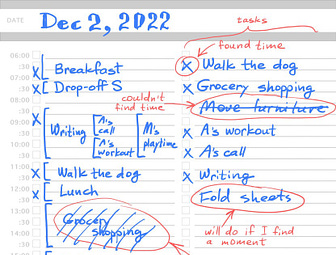 DATE
Dec 2, 2022
tasks
found time
06:00
:30
Breakfast
Walk the dog
07:00
:30
Drop-off S
Grocery shopping
08:00
couldn't find time
Move furniture
:30
09:00
Writing
A's call
M's playtime
A's workout
:30
10:00
A's workout
A's call
:30
11:00
Walk the dog
Writing
:30
12:00
Lunch
Fold sheets
:30
Grocery shopping
:30
will do if I find
a moment
:30